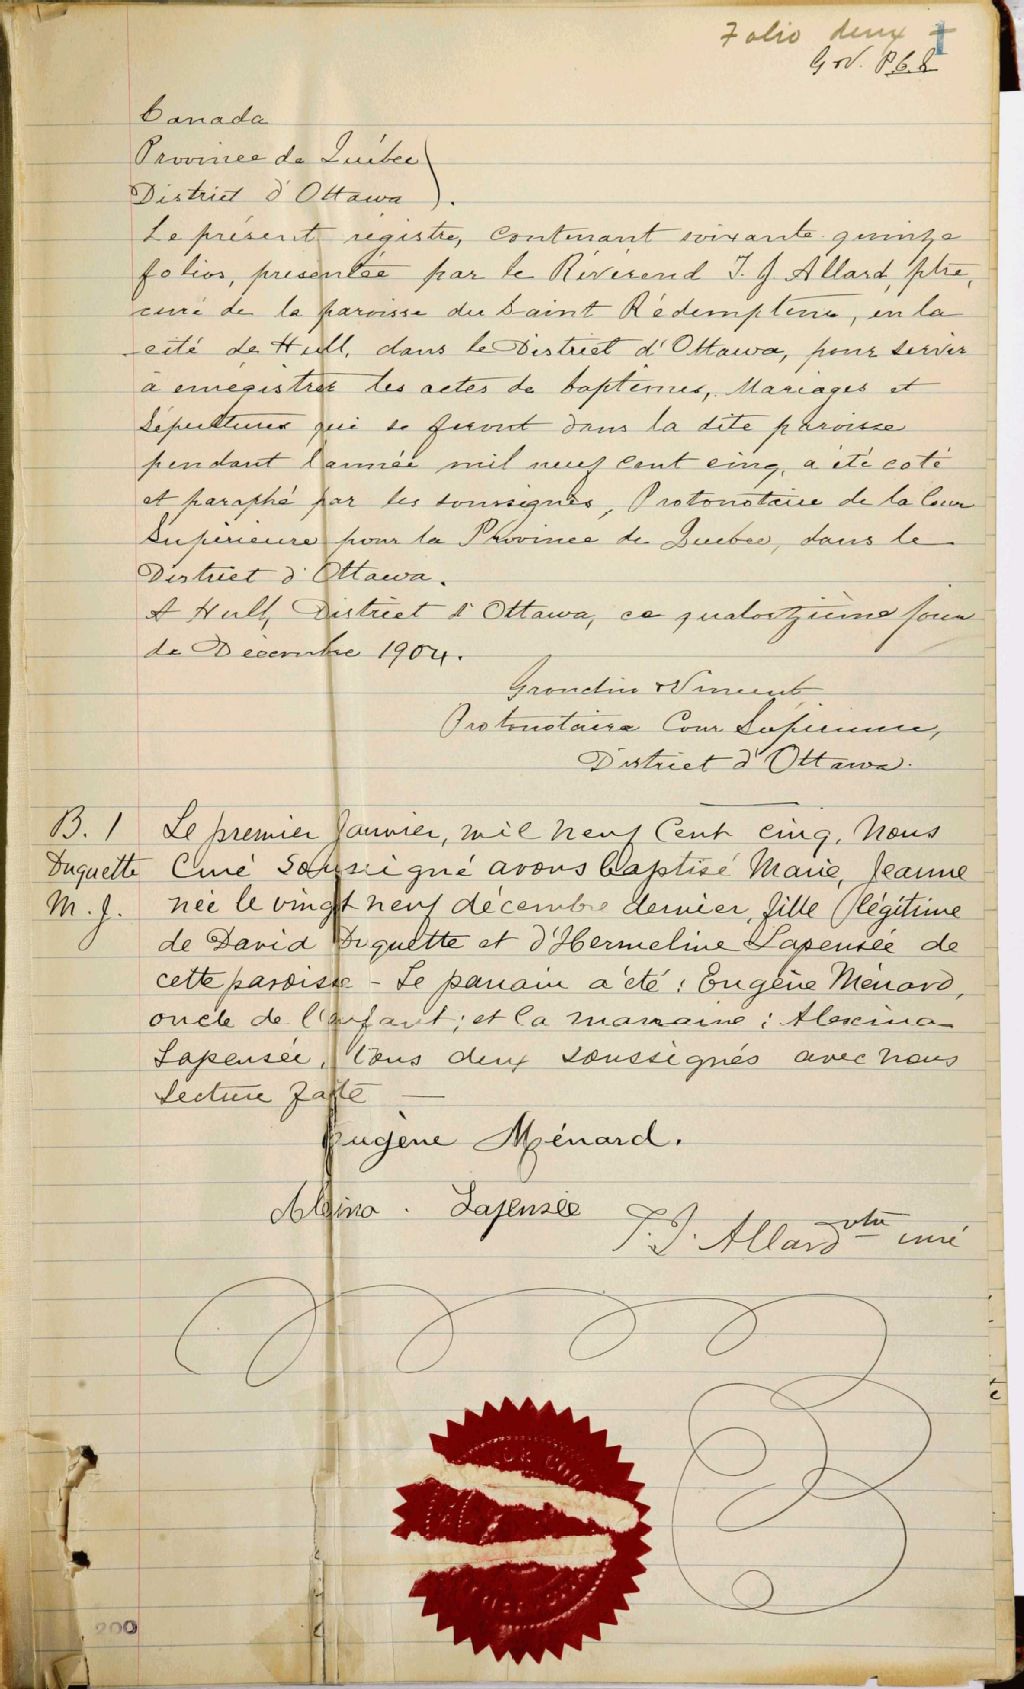 Folio deux
G &V. P.C.S
Canada
Province de Québec
District d'Ottawa.
Le présent régistre, contenant soixante quinze
folios, présentée par le Révérend T. J Allard, ptre,
curé de la paroisse du Saint Rédempteur, en la
cité de Hull, dans le District d'Ottawa, pour servir
à enrégistrer les actes de baptêmes, Mariages et
Sépultures qui se feront dans la dite paroisse
pendant l'année mil neuf cent cinq, a été coté
et paraphé par les soussignés, Protonotaire de la Cour
Supérieure pour la Province de Quebec, dans le
District d'Ottawa.
A Hull, District d'Ottawa, ce quatorzième jour
de Décembre 1904.
Grondin & Vincent
Protonotaire Cour Supérieure,
District d'Ottawa.
B. 1 Le premier Janvier, mil neuf Cent cinq, Nous
Duquette Curé soussigné avons baptisé Marie, Jeanne
M. J. née le vingt neuf décembre dernier, fille légitime
de David Duquette et d'Hermeline Lapensée de
cette paroisse - Le parrain a été : Eugène Ménard,
oncle de l'enfant; et la marraine : Alexina
Lapensée, tous deux soussignés avec nous
Lecture faite —
Eugène Ménard.
Alexina . Lapensée
T. J. Allard ptre curé
200